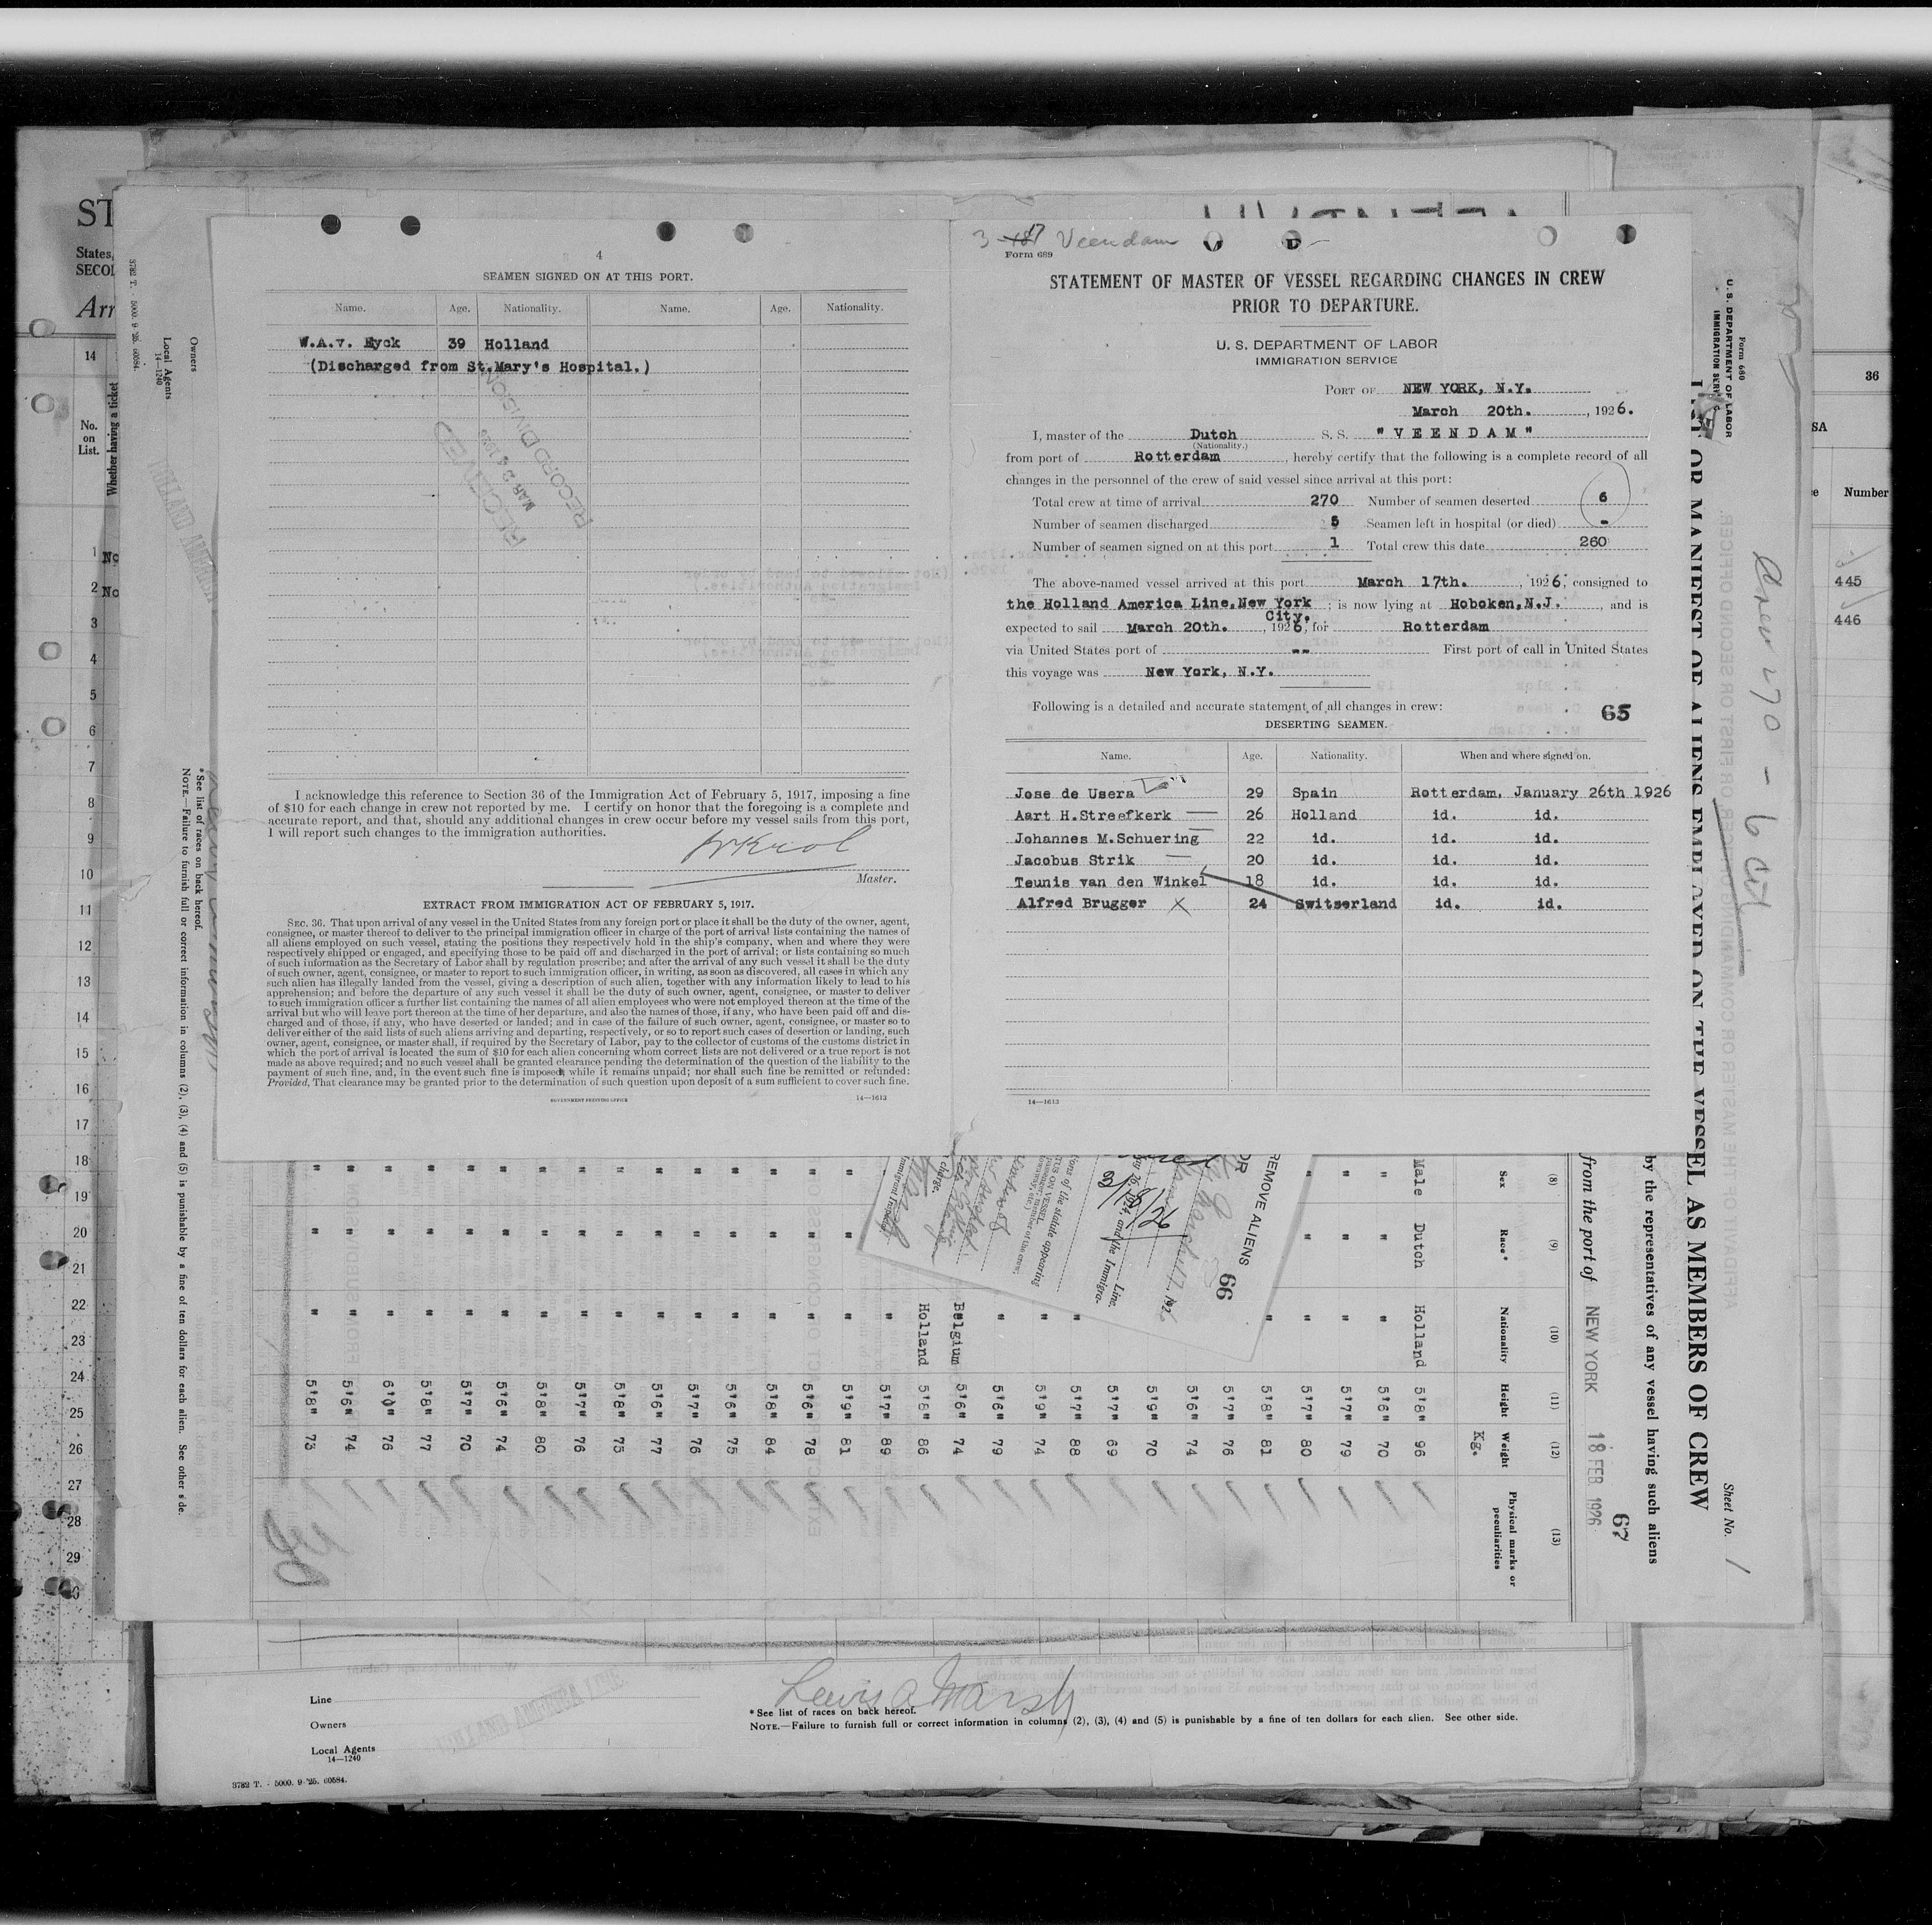 4
SEAMEN SIGNED ON AT THIS PORT.
Name. Age. Nationality. Name. Age. Nationality.
W.A.v. Eyck 39 Holland
(Discharged from St.Mary's Hospital.)
RECEIVED
MAR 24
RECORD DIVISION
I acknowledge this reference to Section 36 of the Immigration Act of February 5, 1917, imposing a fine
of $10 for each change in crew not reported by me. I certify on honor that the foregoing is a complete and
accurate report, and that, should any additional changes in crew occur before my vessel sails from this port,
I will report such changes to the immigration authorities.
Krol
Master.
EXTRACT FROM IMMIGRATION ACT OF FEBRUARY 5, 1917.
SEC. 36. That upon arrival of any vessel in the United States from any foreign port or place it shall be the duty of the owner, agent,
consignee, or master thereof to deliver to the principal immigration officer in charge of the port of arrival lists containing the names of
all aliens employed on such vessel, stating the positions they respectively hold in the ship's company, when and where they were
respectively shipped or engaged, and specifying those to be paid off and discharged in the port of arrival; or lists containing so much
of such information as the Secretary of Labor shall by regulation prescribe; and after the arrival of any such vessel it shall be the duty
of such owner, agent, consignee, or master to report to such immigration officer, in writing, as soon as discovered, all cases in which any
such alien has illegally landed from the vessel, giving a description of such alien, together with any information likely to lead to his
apprehension; and before the departure of any such vessel it shall be the duty of such owner, agent, consignee, or master to deliver
to such immigration officer a further list containing the names of all alien employees who were not employed thereon at the time of the
arrival but who will leave port thereon at the time of her departure, and also the names of those, if any, who have been paid off and dis-
charged and of those, if any, who have deserted or landed; and in case of the failure of such owner, agent, consignee, or master so to
deliver either of the said lists of such aliens arriving and departing, respectively, or so to report such cases of desertion or landing, such
owner, agent, consignee, or master shall, if required by the Secretary of Labor, pay to the collector of customs of the customs district in
which the port of arrival is located the sum of $10 for each alien concerning whom correct lists are not delivered or a true report is not
made as above required; and no such vessel shall be granted clearance pending the determination of the question of the liability to the
payment of such fine, and, in the event such fine is imposed, while it remains unpaid; nor shall such fine be remitted or refunded:
Provided, That clearance may be granted prior to the determination of such question upon deposit of a sum sufficient to cover such fine.
GOVERNMENT PRINTING OFFICE 14—1613
3 17 Veendam
Form 689
STATEMENT OF MASTER OF VESSEL REGARDING CHANGES IN CREW
PRIOR TO DEPARTURE.
U. S. DEPARTMENT OF LABOR
IMMIGRATION SERVICE
PORT OF NEW YORK, N.Y.
March 20th. , 1926.
I, master of the Dutch S. S. "VEENDAM"
(Nationality.)
from port of Rotterdam , hereby certify that the following is a complete record of all
changes in the personnel of the crew of said vessel since arrival at this port:
Total crew at time of arrival 270 Number of seamen deserted 6
Number of seamen discharged 5 Seamen left in hospital (or died) -
Number of seamen signed on at this port 1 Total crew this date 260
The above-named vessel arrived at this port March 17th. , 1926, consigned to
the Holland America Line,New York City. ; is now lying at Hoboken,N.J. , and is
expected to sail March 20th. , 1926, for Rotterdam
via United States port of -- First port of call in United States
this voyage was New York, N.Y.
Following is a detailed and accurate statement of all changes in crew: 65
DESERTING SEAMEN.
Name. Age. Nationality. When and where signed on.
Jose de Usera 29 Spain Rotterdam, January 26th 1926
Aart H.Streefkerk 26 Holland id. id.
Johannes M.Schuering 22 id. id. id.
Jacobus Strik 20 id. id. id.
Teunis van den Winkel 18 id. id. id.
Alfred Brugger X 24 Switserland id. id.
14—1613
Form 680
U. S. DEPARTMENT OF LABOR
IMMIGRATION SERVICE
Sheet No. 1
OR MANIFEST OF ALIENS EMPLOYED ON THE VESSEL AS MEMBERS OF CREW
by the representatives of any vessel having such aliens
67
from the port of NEW YORK 18 FEB 1926
(8) (9) (10) (11) (12) (13)
Sex Race* Nationality Height Weight Physical marks or peculiarities
Kg.
Male Dutch Holland 5'8" 96
" " " 5'6" 70
" " " 5'7" 79
" " " 5'7" 80
" 5'8" 81
5'7" 76
5'6" 74
5'9" 70
5'7" 69
" 5'7" 88
" 5'9" 74
" 5'6" 79
Belgium 5'6" 74
Holland 5'8" 86
" 5'7" 89
" " " 5'9" 81
" " " 5'6" 78
" " " 5'8" 84
" " " 5'6" 75
" " " 5'7" 76
" " " 5'6" 77
" " " 5'8" 75
" " " 5'7" 76
" " " 5'8" 80
" " " 5'6" 74
" " " 5'7" 70
" " " 5'8" 77
" " " 6'0" 76
" " " 5'6" 74
" " " 5'8" 73
REMOVE ALIENS
66
1926
Line.
and the Immigra-
3/18/26
tions of the statute appearing
Immigrant Inspector
Owners
Local Agents
14—1240
3782 T. - 5000. 9-'25. 60584.
* See list of races on back hereof.
NOTE.—Failure to furnish full or correct information in columns (2), (3), (4) and (5) is punishable by a fine of ten dollars for each alien. See other side.
Crew 270 - 6
ST
States,
SECO
Arr
No.
on
List.
Whether having a ticket
14
1 No
2 No
3
4
5
6
7
8
9
10
11
12
13
14
15
16
17
18
19
20
21
22
23
24
25
26
27
28
29
30
36
SA
Number
445
446
Lewis A Marsh
Line
Owners
Local Agents
14—1240
* See list of races on back hereof.
NOTE.—Failure to furnish full or correct information in columns (2), (3), (4) and (5) is punishable by a fine of ten dollars for each alien. See other side.
3782 T. - 5000. 9-'25. 60584.